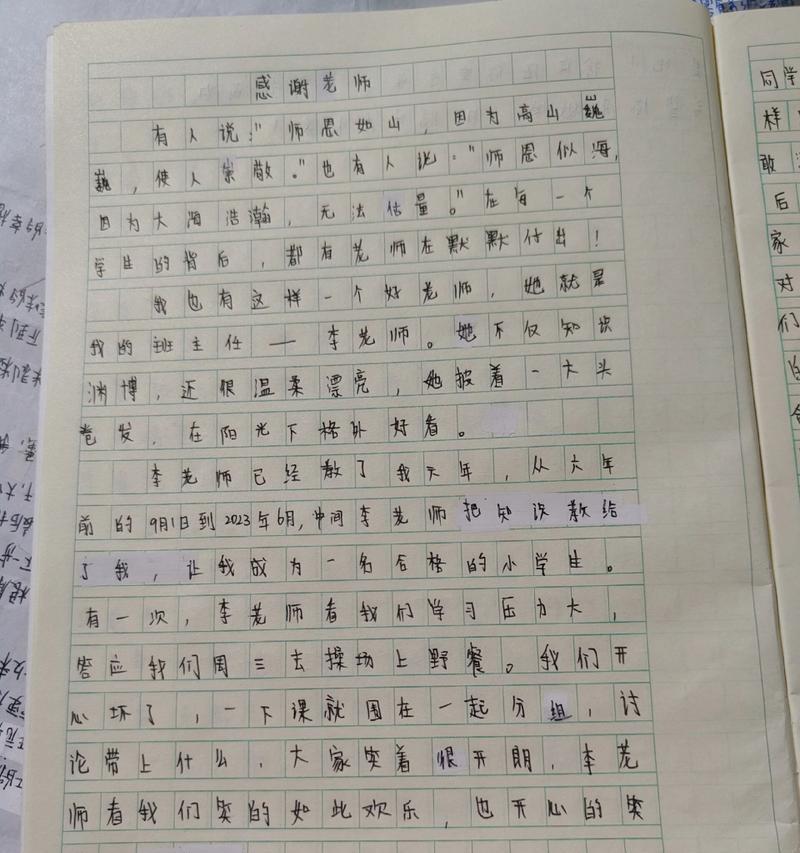 感谢老师
有人说:"师恩如山,因为高山巍
巍,使人崇敬。"也有人说:"师恩似海,
因为大海浩瀚,无法估量。"在每一个
学生的背后,都有老师在默默付出!
我也有这样一个好老师,她就是
我的班主任——李老师。她不仅知识
渊博,还很温柔漂亮,她披着一大头
卷发,在阳光下格外好看。
李老师已经教了我六年,从六年
前的9月1日到2023年6月,中间李老师把知识教给
了我,让我成为一名合格的小学生。
有一次,李老师看我们学习压力大,
答应我们周三去操场上野餐。我们开
心坏了,一下课就围在一起分组,讨
论带上什么,大家笑着很开朗,李老
师看我们笑的如此欢乐,也开心的笑
同学
样
敢
后
家
对
们